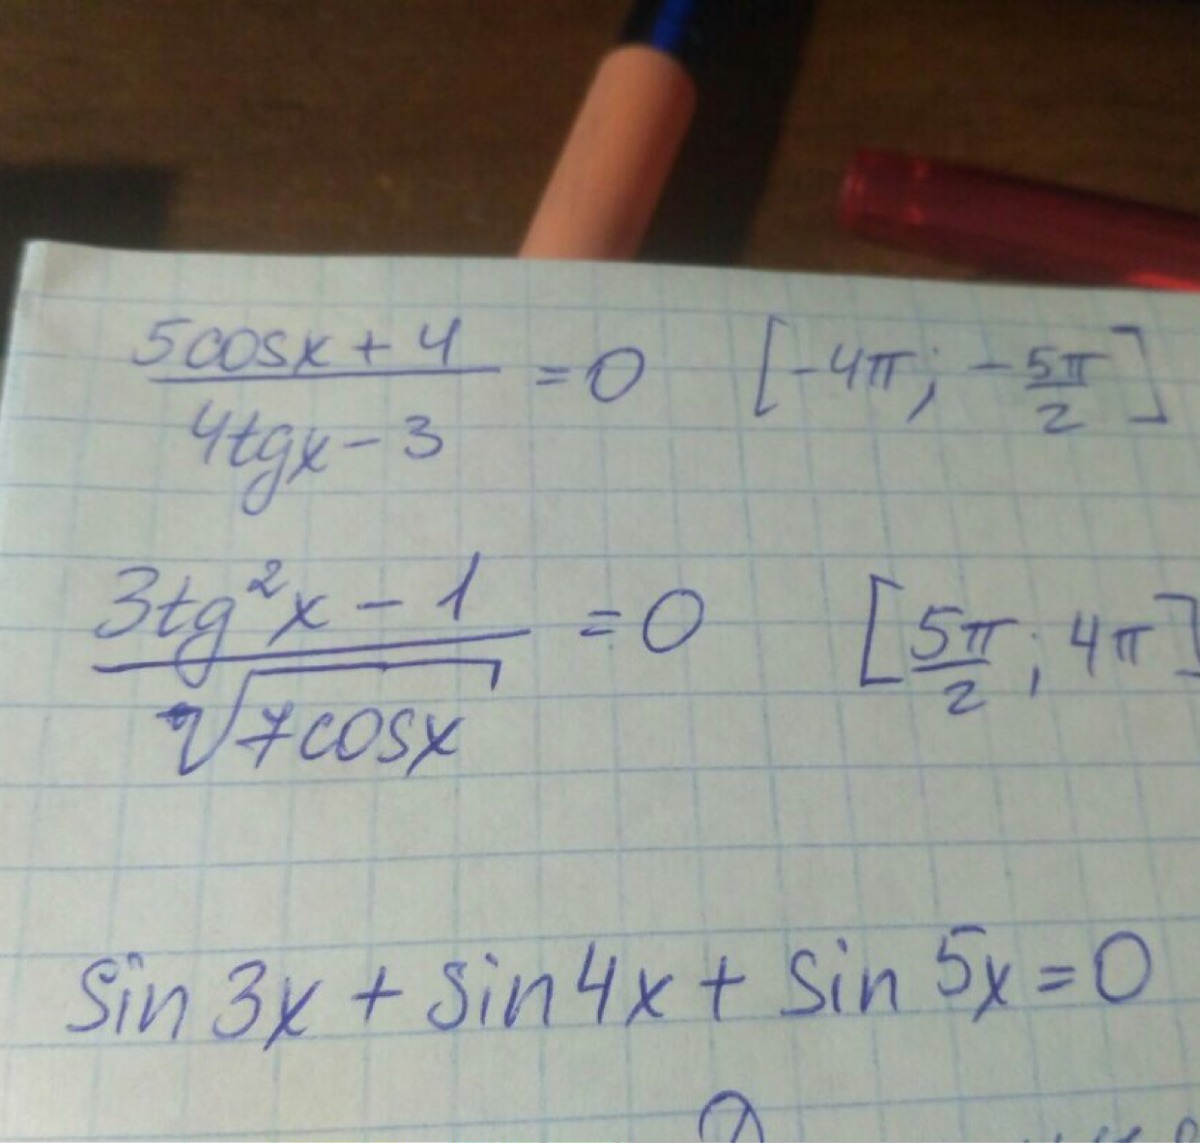 5cosx + 4 / 4tgx - 3 = 0 [-4π; -5π/2]
3tg²x - 1 / √7cosx = 0 [5π/2; 4π]
sin 3x + sin 4x + sin 5x = 0